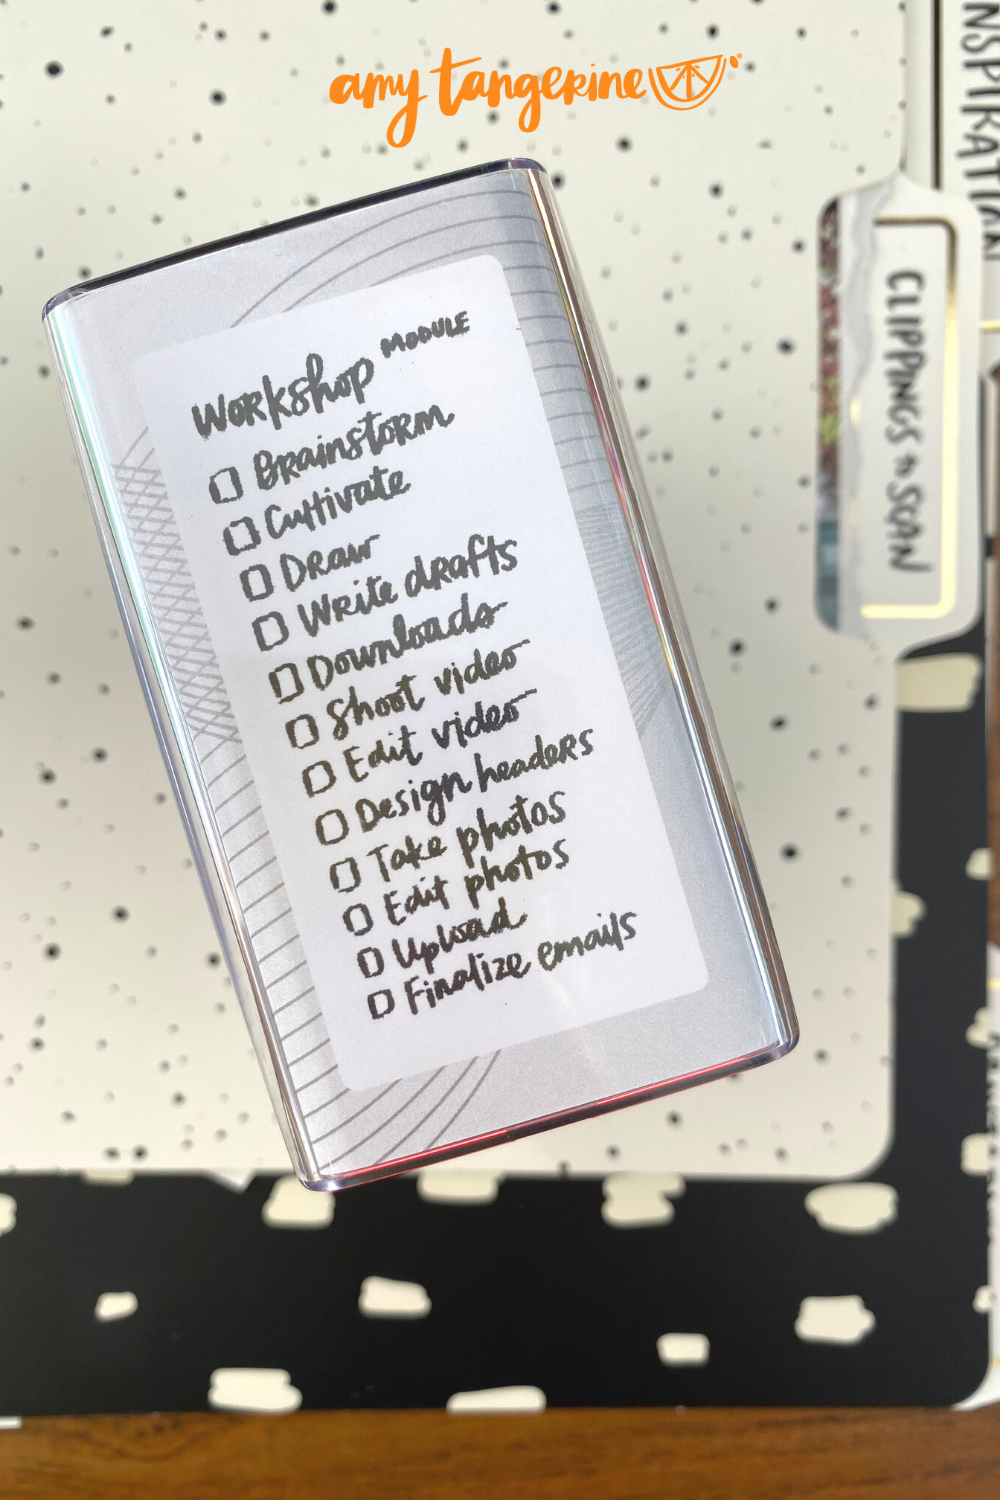 amy tangerine
NSPIRATION
WORKshop MODULE
BRainstorm
Cultivate
DRaw
WRite drafts
Downloads
Shoot video
Edit video
Design headers
Take photos
Edit photos
Upload
Finalize emails
CLIPPINGS to SCAN